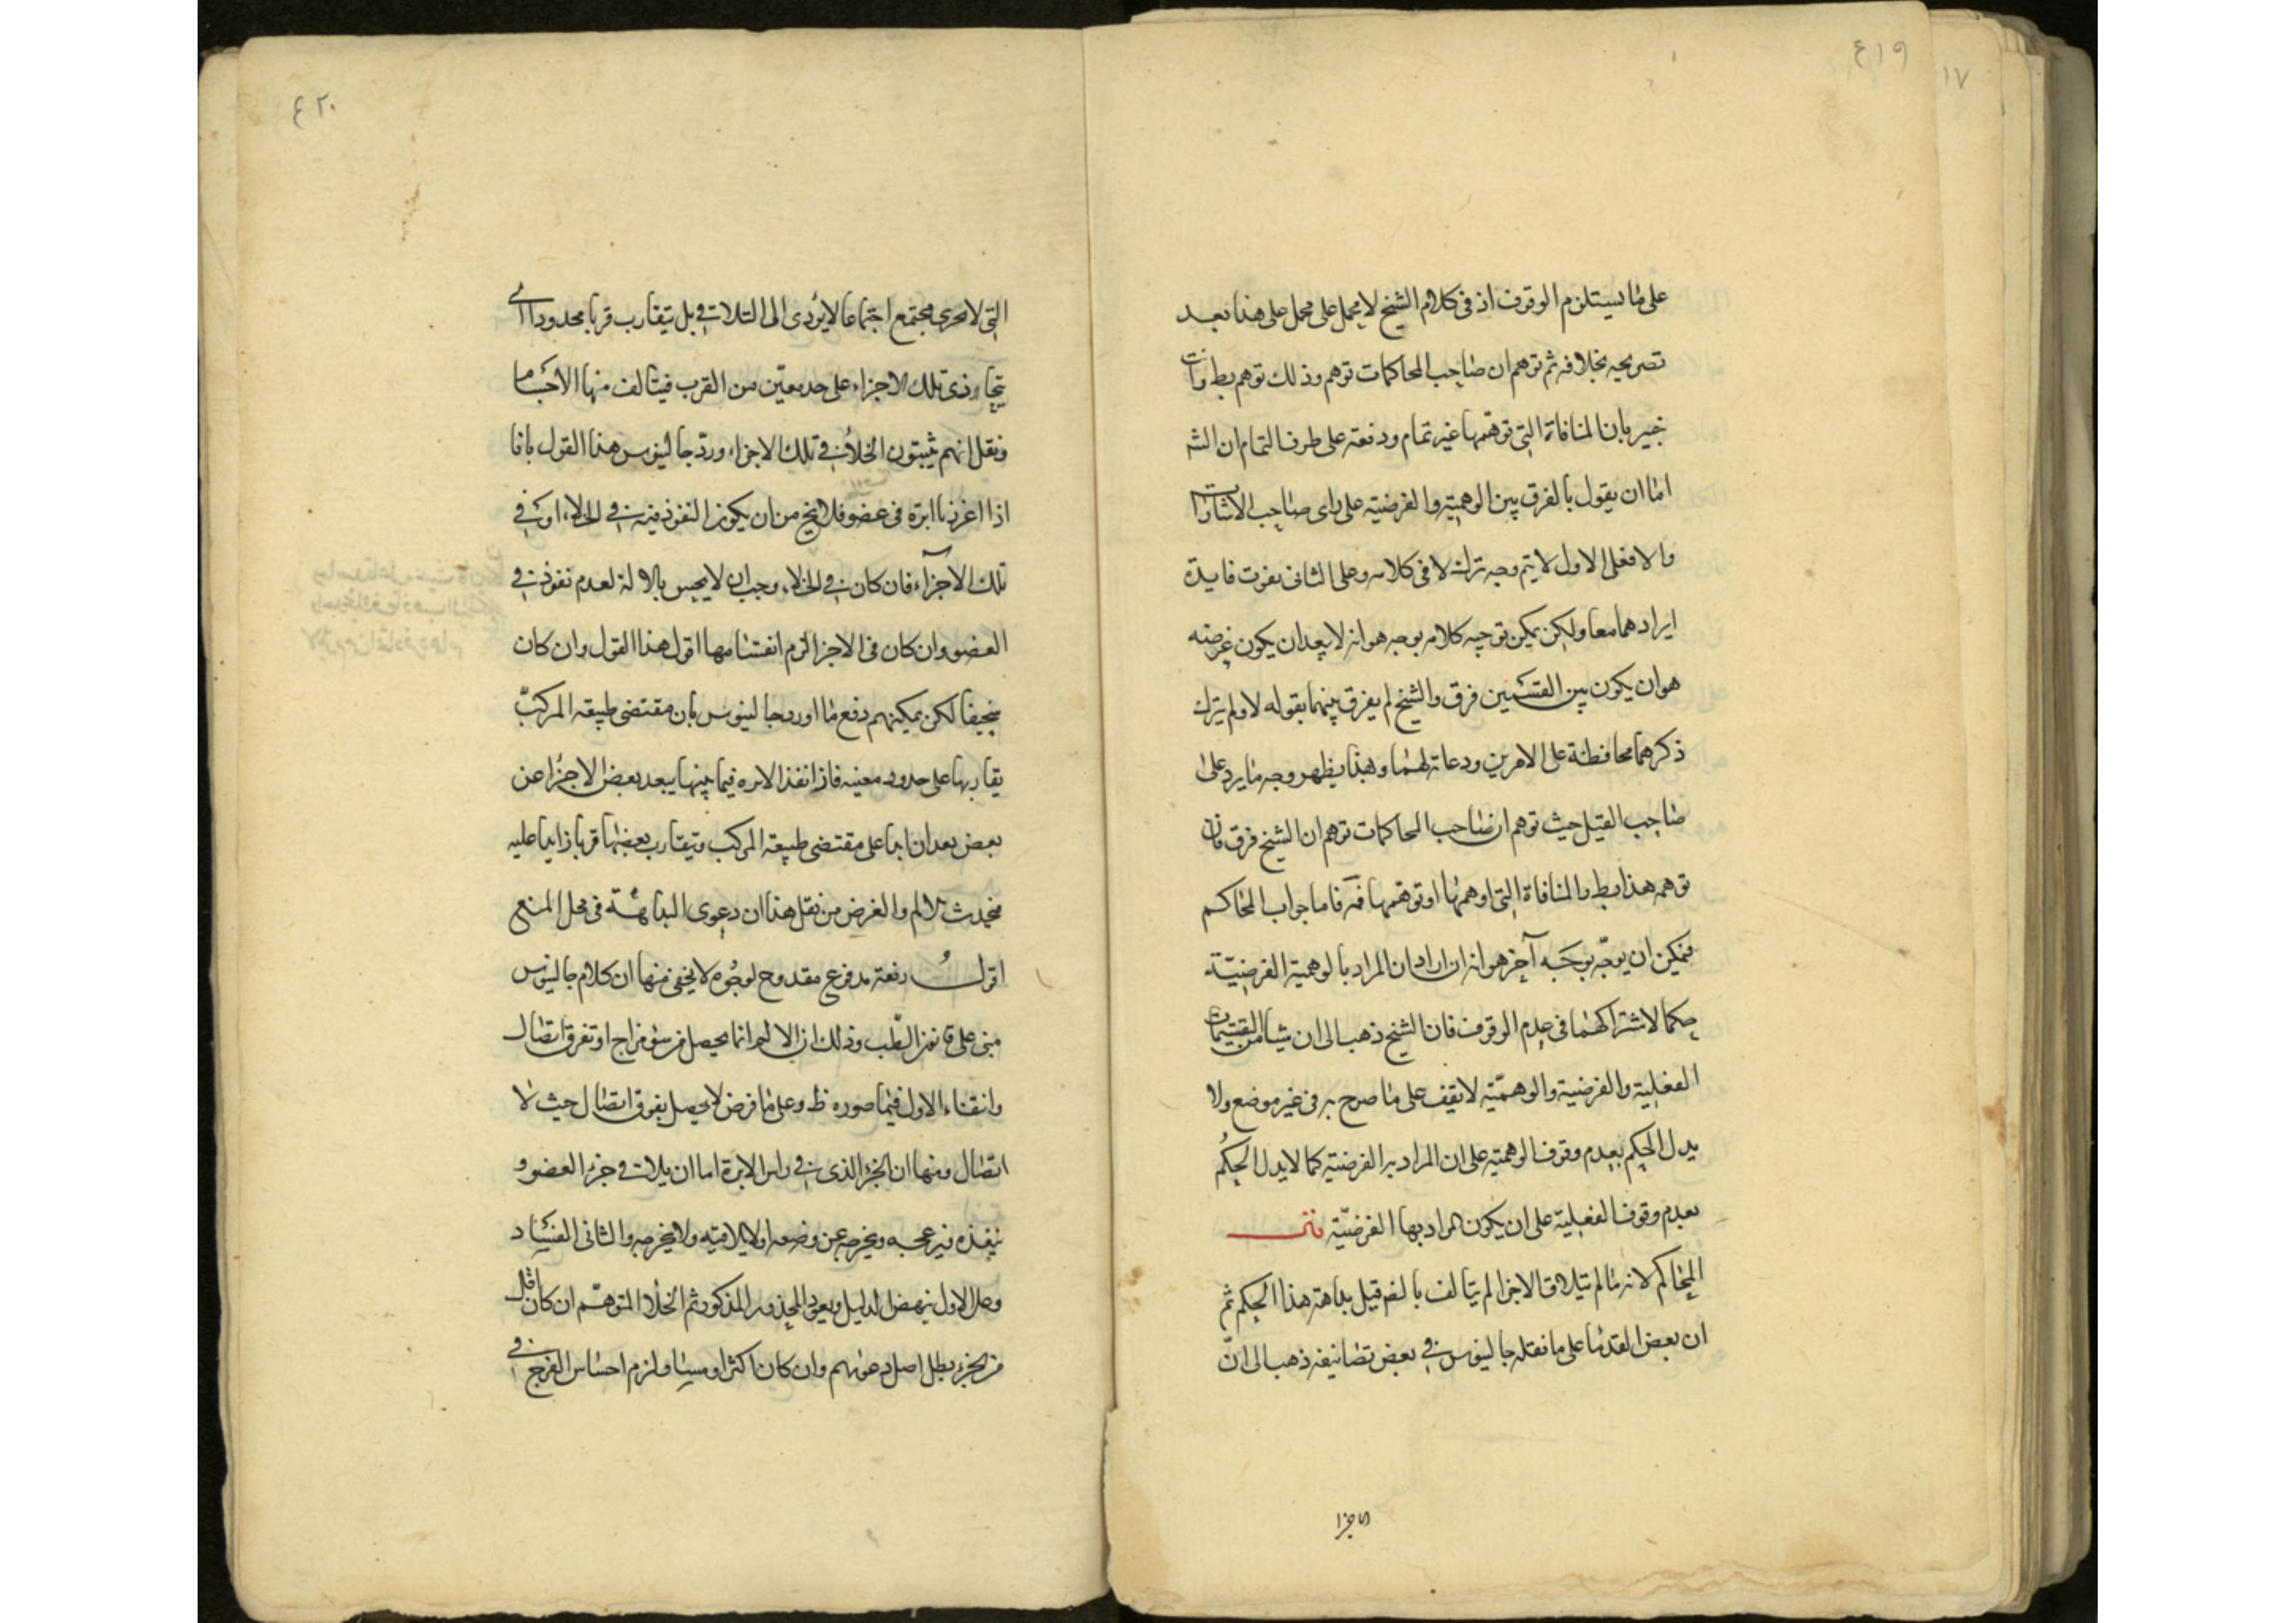 ٤١٩
١٧
على ما يستلزم الوقوف اذ فى كلام الشيخ لا يحمل على محمل على هذا بعد
تصريحه بخلافه ثم توهم ان صاحب المحاكمات توهم وذلك توهم بط وانت
خبير بان المنافاة التى توهمها غير تمام ودفعته على طرف التمام ان الشه
اما ان يقول بالفرق بين الوهمية والفرضية على راى صاحب الاشارات
والا فعلى الاول لا يتم وجه ترك لا فى كلامه وعلى الثانى يفوت فايدة
ايرادهما معا ولكن يمكن توجيه كلامه بوجه هو انه لا يبعد ان يكون غرضه
هو ان يكون بين القسمين فرق والشيخ لم يفرق بينهما بقوله لا ولم يترك
ذكرهما محافظة على الامرين ودعاته لهما وبهذا يظهر وجه ما يرد على
صاحب القيل حيث توهم ان صاحب المحاكمات توهم ان الشيخ فرق فان
توهمه هذا بط والمنافاة التى اوهمها او توهمها فاما جواب المحاكم
فيمكن ان يوجه بوجه آخر هو انه ان اراد ان المراد بالوهمية الفرضية
حكما لاشتراكهما فى عدم الوقوف فان الشيخ ذهب الى ان شيئا من القسمات
الفعلية والفرضية والوهمية لا تقف على ما صرح به فى غير موضع ولا
يدل الحكم بعدم وقوف الوهمية على ان المراد بها الفرضية كما لا يدل الحكم
بعدم وقوف الفعلية على ان يكون المراد بها الفرضية
المحاكم لانه ما لم يتلاق الاجزا لم يتالف بالضم قيل بداهة هذا الحكم ثم
ان بعض القدما على ما نقله جالينوس فى بعض تصانيفه ذهب الى ان
الاجزا
٤٢٠
التى لا تتجزى مجتمع اجتماعا لا يؤدى الى التلاقى بل يتقارب قربا محدودا اى
يتحاذى تلك الاجزاء على حد معين من القرب فيتالف منها الاجسام
ونقل انهم يثبتون الخلأ فى تلك الاجزاء ورد جالينوس هذا القول بانا
اذا اغرزنا ابرة فى عضو فلا يخ من ان يكون النفوذ فيه فى الخلاء او فى
تلك الاجزآء فان كان فى الخلاء وجب ان لا يحس بالالم لعدم نفوذه فى
العضو وان كان فى الاجزا لزم انقسامها اقول هذا القول وان كان
سخيفا لكن يمكنهم دفع ما اورد جالينوس بان مقتضى طبيعة المركب
تقاربها على حدود معينه فاذا نفذ الابره فيما بينها يبعد بعض الاجزا عن
بعض بعدا زايدا على مقتضى طبيعة المركب ويتقارب بعضها قربا زايدا عليه
فيحدث الالم والغرض من نقل هذا ان دعوى البداهة فى محل المنع
اقول دفعه مدفوع مقدوح لوجوه لا يخفى منها ان كلام جالينوس
مبنى على قانون الطب وذلك ان الالم انما يحصل من سوء مزاج او تفرق اتصال
وانتفاء الاول فيما صوره ظ وعلى ما فرض لا يحصل تفرق اتصال حيث لا
اتصال ومنها ان الجزء الذى فى راس الابرة اما ان يلاقى جزء العضو و
ينفذه فيزعجه ويخرجه عن وضعه او لا يلاقيه ولا يخرجه والثانى الفساد
وعلى الاول ينهض الدليل ويعود المحذور المذكور ثم الخلأ المتوهم ان كان اقل
من الجزء بطل اصل دعويهم وان كان اكثر او مساويا لزم احساس الفرج فى